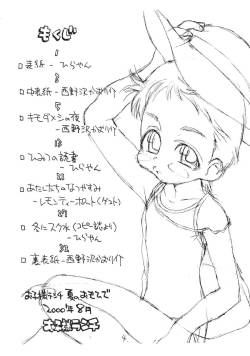 もくじ
1
□ 表紙 - ひらやん
2
□ 中表紙 - 西野沢かおり介
5
□ キモダメシの夜
- 西野沢かおり介
□ ひみつの読書
- ひらやん
□ あたしたちのなつやすみ
- レモンティーホット(ゲスト)
29
□ 冬にスケ水(コピー誌より)
- ひらやん
□ 裏表紙 - 西野沢かおり介
お子様ランチ 夏のおもひで
2000年8月
4